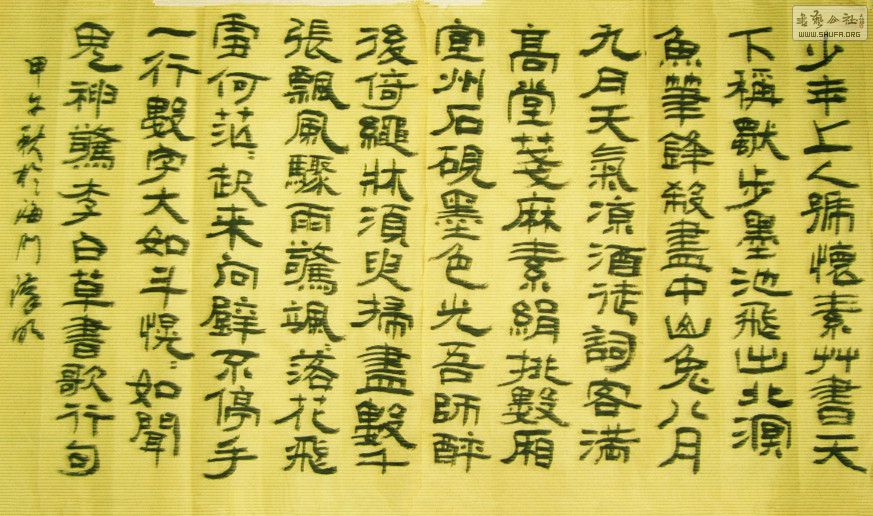 書藝公社
WWW.SHUFA.ORG
少年上人號懷素艸書天
下稱獨步墨池飛出北溟
魚筆鋒殺盡中山兔八月
九月天氣涼酒徒詞客滿
高堂箋麻素絹排數廂
宣州石硯墨色光吾師醉
後倚繩牀須臾掃盡數千
張飄風驟雨驚颯〻落花飛
雪何茫〻起来向壁不停手
一行數字大如斗怳〻如聞
鬼神驚李白草書歌行句
甲午秋於海門